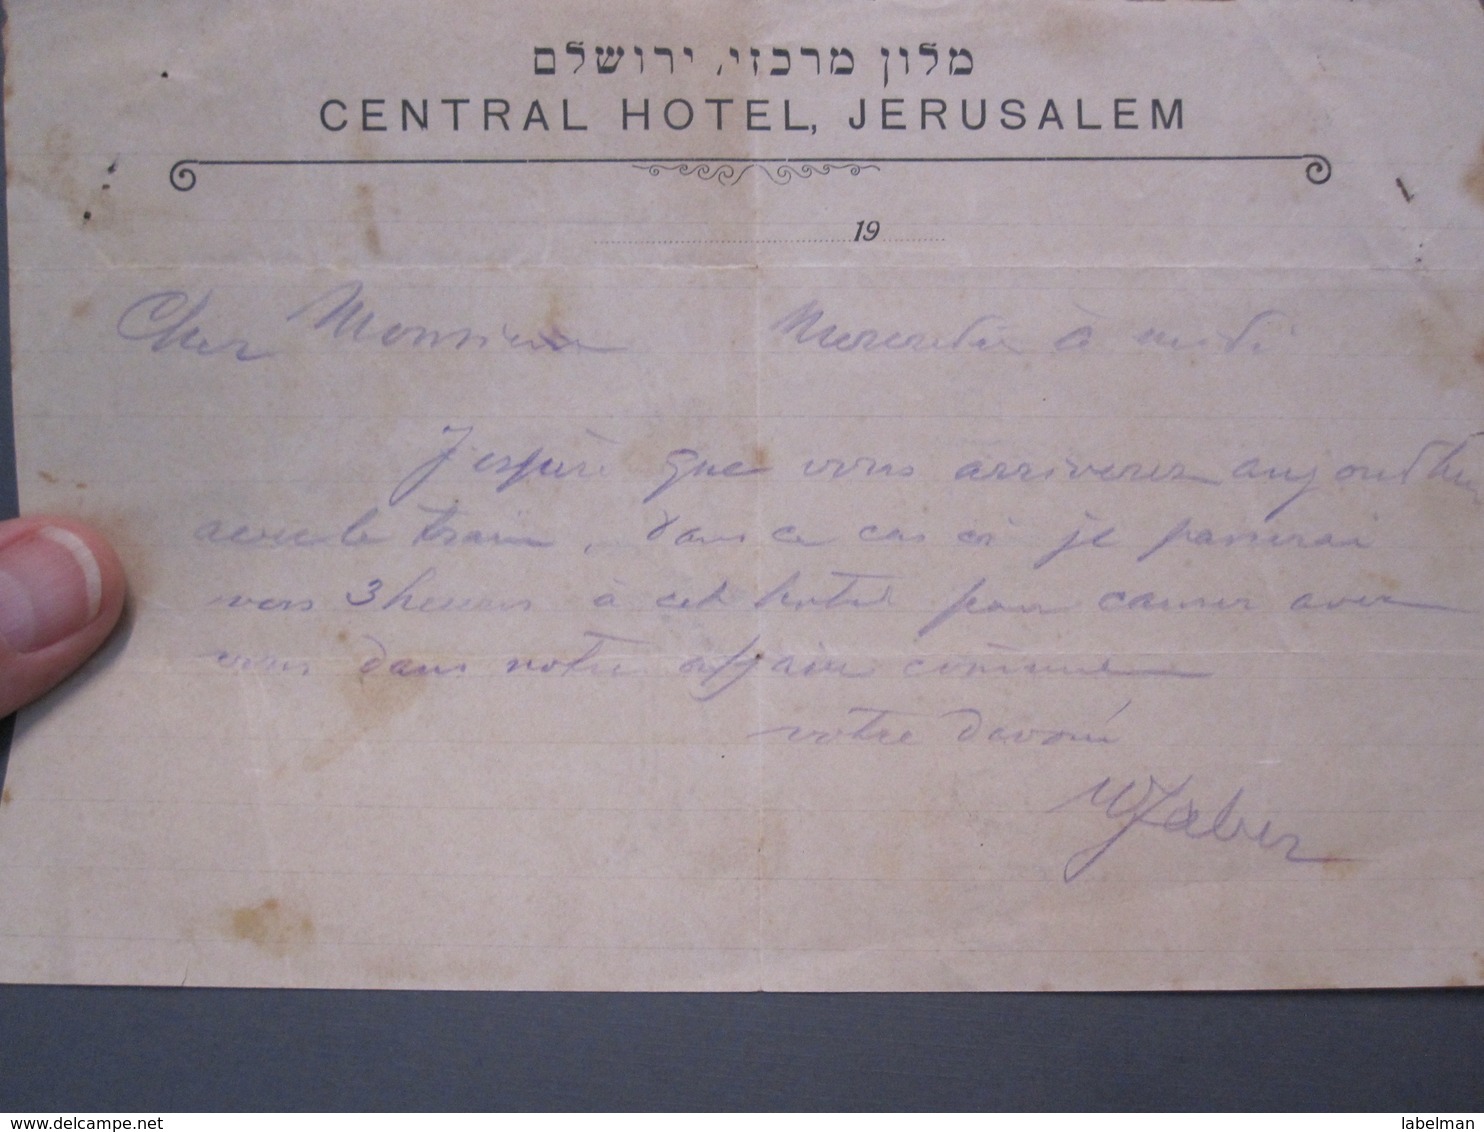 מלון מרכזי, ירושלם
CENTRAL HOTEL, JERUSALEM
19
Cher Monsieur Mercredi à midi
J'espère que vous arriverez aujourd'hui
avec le train, dans ce cas ci je passerai
vers 3 heures à cet hotel pour causer avec
vous dans notre affaire commune
votre dévoué
Faber
www.delcampe.net
labelman